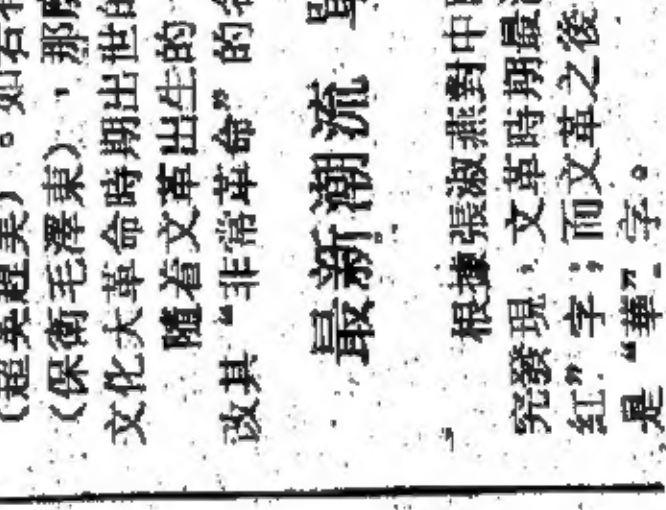 （超英趕美）。如若
（保衛毛澤東），那麼
文化大革命時期出世的
隨着文革出生的
改其“非常革命”的
最新潮流
根據張淑燕對中
究發現，文革時期最
紅”字；而文革之後
是“華”字。